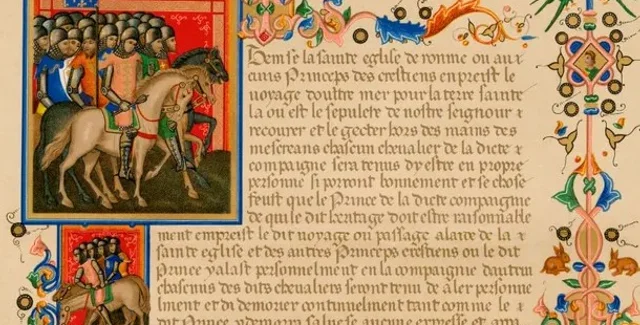 Dem se la sainte eglise de romme ou aux
ains Princeps des crestiens enpreist le
voyage doultre mer pour la terre sainte
la ou est le sepulcre de nostre seigneur &
recourer et le gecter hors des mains des
mescreans chascun chevalier de la dicte &
compaigne sera tenus dy estre en propre
personne si porront bonnement et se chose
feust que le Prince de la dicte compaigne
de qui le dit heritage doit estre raisonnable
ment empreist le dit voyage ou passage alaire de la &
sainte eglise et des autres Princeps crestiens ou le dit
Prince yalast personnelment en la compaignie dautrui
chascuns des dits chevaliers seront tenu de aler personne
lment et di demorer continuelment tant comme le &
dit Prince y demorra